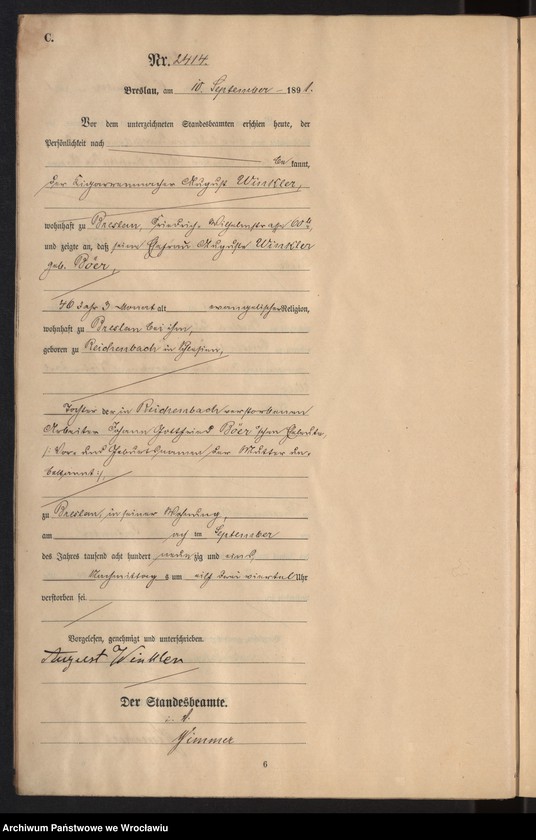 C.
Nr. 2414.
Breslau, am 10. September 1891.
Vor dem unterzeichneten Standesbeamten erschien heute, der
Persönlichkeit nach
be kannt,
der Cigarrenmacher August Winkler,
wohnhaft zu Breslau, Friedrich-Wilhelmstraße 60
und zeigte an, daß seine Ehefrau Auguste Winkler
geb. Böer,
40 Jahr 3 Monat alt evangelischer Religion,
wohnhaft zu Breslau bei ihm,
geboren zu Reichenbach in Schlesien,
Tochter der, in Reichenbach verstorbenen
Arbeiter Johann Gottfried Böer'schen Eheleute,
/: Vor- und Geburtsnamen der Mutter un-
bekannt :/,
zu Breslau, in seiner Wohnung,
am acht ten September
des Jahres tausend acht hundert neun zig und eins,
Nachmittag s um elf drei viertel Uhr
verstorben sei.
Vorgelesen, genehmigt und unterschrieben.
August Winkler
Der Standesbeamte.
i. V.
6
Archiwum Państwowe we Wrocławiu